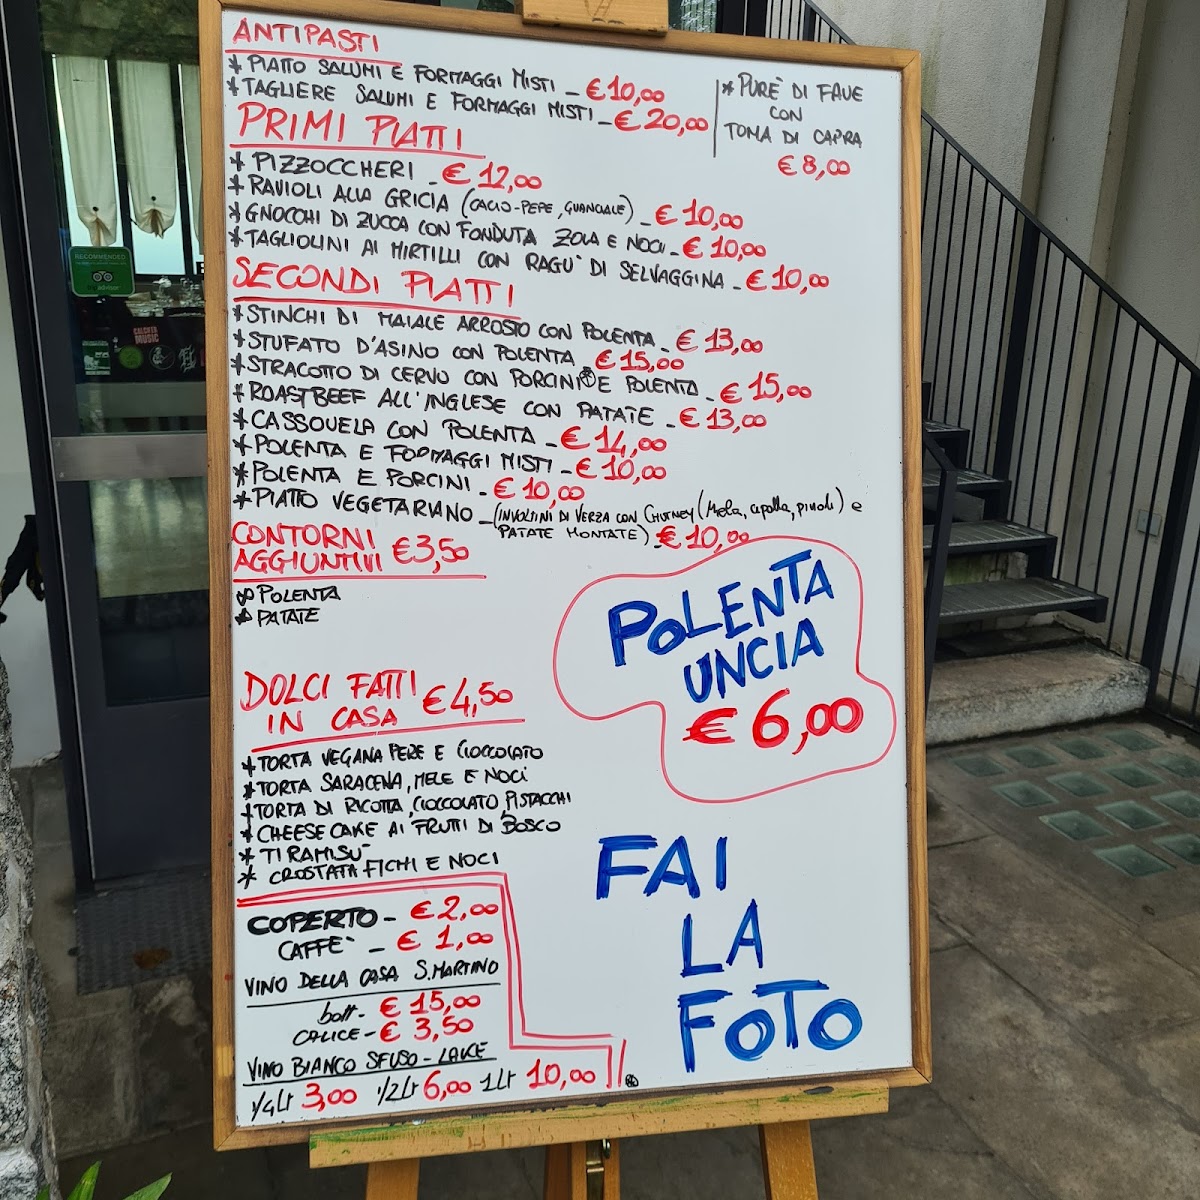 ANTIPASTI
* PIATTO SALUMI E FORMAGGI MISTI - € 10,00
* TAGLIERE SALUMI E FORMAGGI MISTI - € 20,00
* PURÈ DI FAVE
CON
TOMA DI CAPRA
€ 8,00
PRIMI PIATTI
* PIZZOCCHERI - € 12,00
* RAVIOLI ALLA GRICIA (CACIO-PEPE, GUANCIALE) - € 10,00
* GNOCCHI DI ZUCCA CON FONDUTA ZOLA E NOCI - € 10,00
* TAGLIOLINI AI MIRTILLI CON RAGU' DI SELVAGGINA - € 10,00
SECONDI PIATTI
* STINCHI DI MAIALE ARROSTO CON POLENTA - € 13,00
* STUFATO D'ASINO CON POLENTA - € 15,00
* STRACOTTO DI CERVO CON PORCINI E POLENTA - € 15,00
* ROASTBEEF ALL'INGLESE CON PATATE - € 13,00
* CASSOUELA CON POLENTA - € 14,00
* POLENTA E FORMAGGI MISTI - € 10,00
* POLENTA E PORCINI - € 10,00
* PIATTO VEGETARIANO - (INVOLTINI DI VERZA CON CHUTNEY (Mela, cipolla, pinoli) e
PATATE MONTATE) - € 10,00
CONTORNI
AGGIUNTIVI € 3,50
* POLENTA
* PATATE
POLENTA
UNCIA
€ 6,00
DOLCI FATTI
IN CASA € 4,50
* TORTA VEGANA PERE E CIOCCOLATO
* TORTA SARACENA, MELE E NOCI
* TORTA DI RICOTTA, CIOCCOLATO, PISTACCHI
* CHEESE CAKE AI FRUTTI DI BOSCO
* TIRAMISU'
* CROSTATA FICHI E NOCI
FAI
LA
FOTO
COPERTO - € 2,00
CAFFE' - € 1,00
VINO DELLA CASA S.MARTINO
bott - € 15,00
CALICE - € 3,50
VINO BIANCO SFUSO - LAKE
1/4 Lt 3,00 1/2 Lt 6,00 1 Lt 10,00
RECOMMENDED
CALCHER
MUSIC